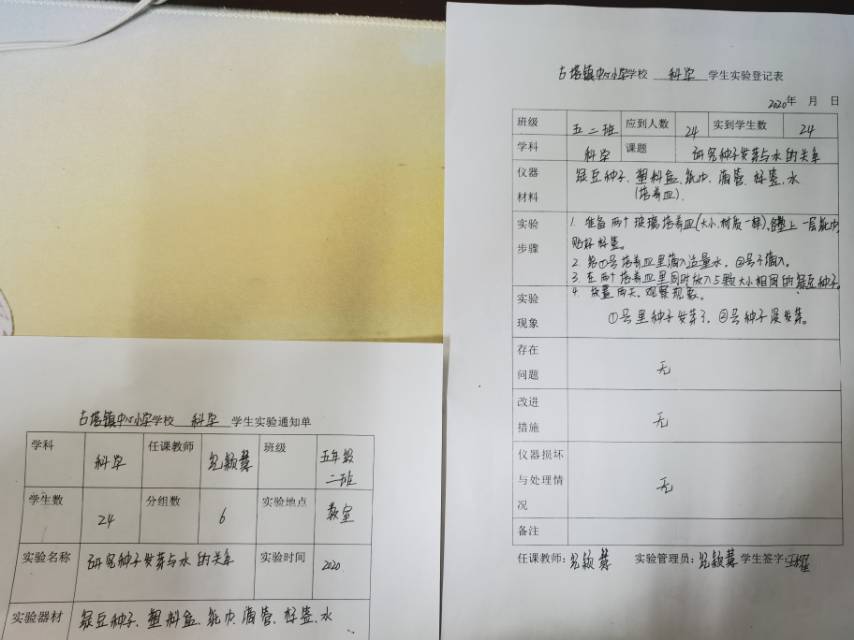 古塔镇中心小学学校 科学 学生实验登记表
2020年 月 日
班级 五二班 应到人数 24 实到学生数 24
学科 科学 课题 研究种子发芽与水的关系
仪器 绿豆种子、塑料盒、纸巾、滴管、标签、水
材料 (培养皿)
实验 1. 准备两个玻璃培养皿(大小、材质一样),垫上一层纸巾
步骤 贴好标签。
2. 给①号培养皿里滴入适量水,②号不滴入。
3. 在两个培养皿里同时放入5颗大小相同的绿豆种子。
实验 4. 放置两天,观察现象。
现象 ①号里种子发芽了,②号种子没发芽。
存在
问题 无
改进
措施 无
仪器损坏
与处理情 无
况
备注
任课教师: 实验管理员: 学生签字:
古塔镇中心小学学校 科学 学生实验通知单
学科 科学 任课教师 班级 五年级
二班
学生数 24 分组数 6 实验地点 教室
实验名称 研究种子发芽与水的关系 实验时间 2020
实验器材 绿豆种子、塑料盒、纸巾、滴管、标签、水